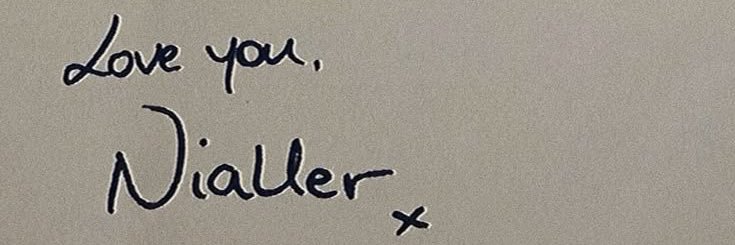 Love you,
Nialler
x